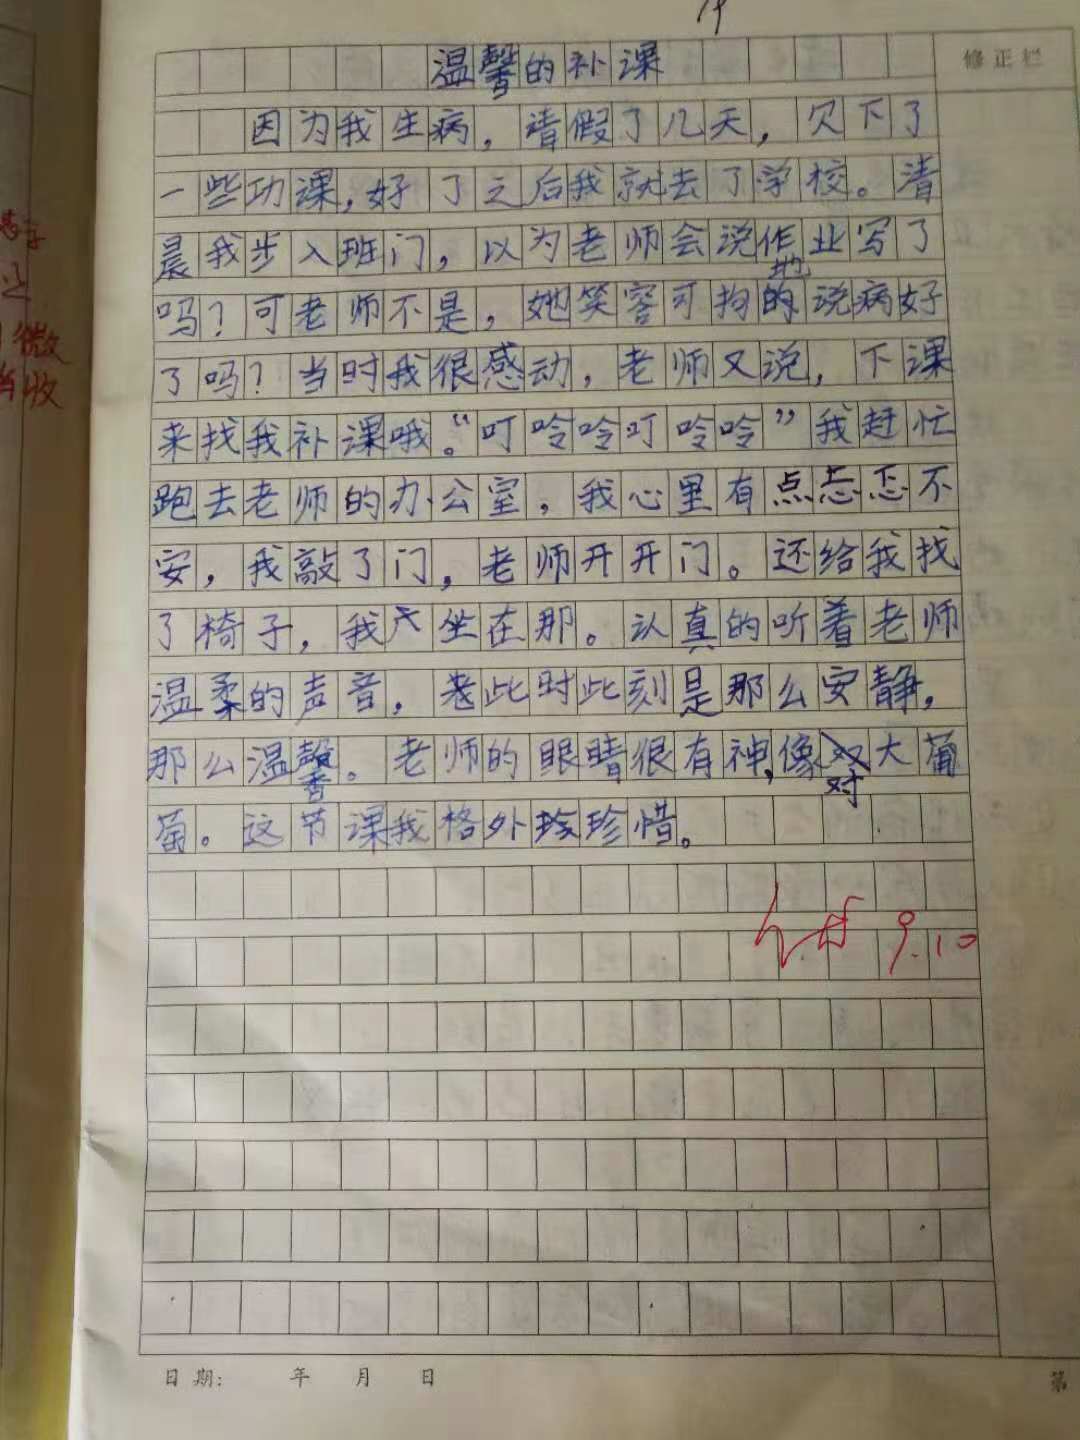 温馨的补课
修正栏
因为我生病，请假了几天，欠下了
一些功课，好了之后我就去了学校。清
晨我步入班门，以为老师会说作业写了
吗？可老师不是，她笑容可掬地说病好
了吗？当时我很感动，老师又说，下课
来找我补课哦。“叮呤呤叮呤呤”我赶忙
跑去老师的办公室，我心里有点忐忑不
安，我敲了门，老师开开门。还给我找
了椅子，我坐在那。认真的听着老师
温柔的声音，此时此刻是那么安静，
那么温馨。老师的眼睛很有神，像对大葡
萄。这节课我格外珍惜。
9.10
日期： 年 月 日
第